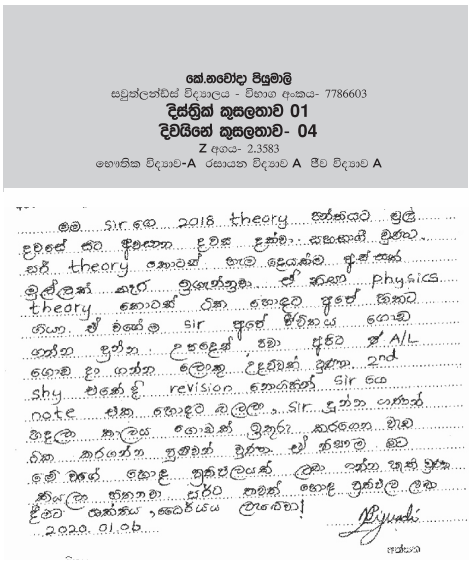 කේ.නවෝදා පියුමාලි
සවුත්ලන්ඩ්ස් විද්‍යාලය - විභාග අංකය- 7786603
දිස්ත්‍රික් කුසලතාව 01
දිවයිනේ කුසලතාව- 04
Z අගය- 2.3583
භෞතික විද්‍යාව-A රසායන විද්‍යාව A ජීව විද්‍යාව A
මම sir ගෙ 2018 theory පන්තියට මුල්
දවසේ සට අවසාන දවස දක්වා සහභාගී වුණා.
සර් theory කොටස් හැම දෙයක්ම අස්සක්
මුල්ලක් නෑර ඉගැන්නුවා ඒ නිසා physics
theory කොටස් ටික හොඳට අපේ හිතට
ගියා. ඒ වගේම sir අපේ ජීවිතය ගොඩ
ගන්න දුන්න උපදෙස් පවා අපිට A/L
ගොඩ දා ගන්න ලොකු උදව්වක් වුණා 2nd
shy එකේ දි revision පන්තියත් sir ගෙ
note එක හොඳට බලලා, sir දුන්න ගණන්
හදලා කාලය ගොඩක් ඉතුරු කරගෙන වැඩ
ටික කරගන්න පුළුවන් වුණා ඒ නිසාම මට
මේ වගේ හොඳ ප්‍රතිඵලයක් ලබා ගන්න හැකි වුණා
කියලා හිතනවා සර්ට තවත් හොඳ ප්‍රතිඵල ලබා
දීමට ශක්තිය, ධෛර්යය ලැබේවා!
2020.01.06
අත්සන